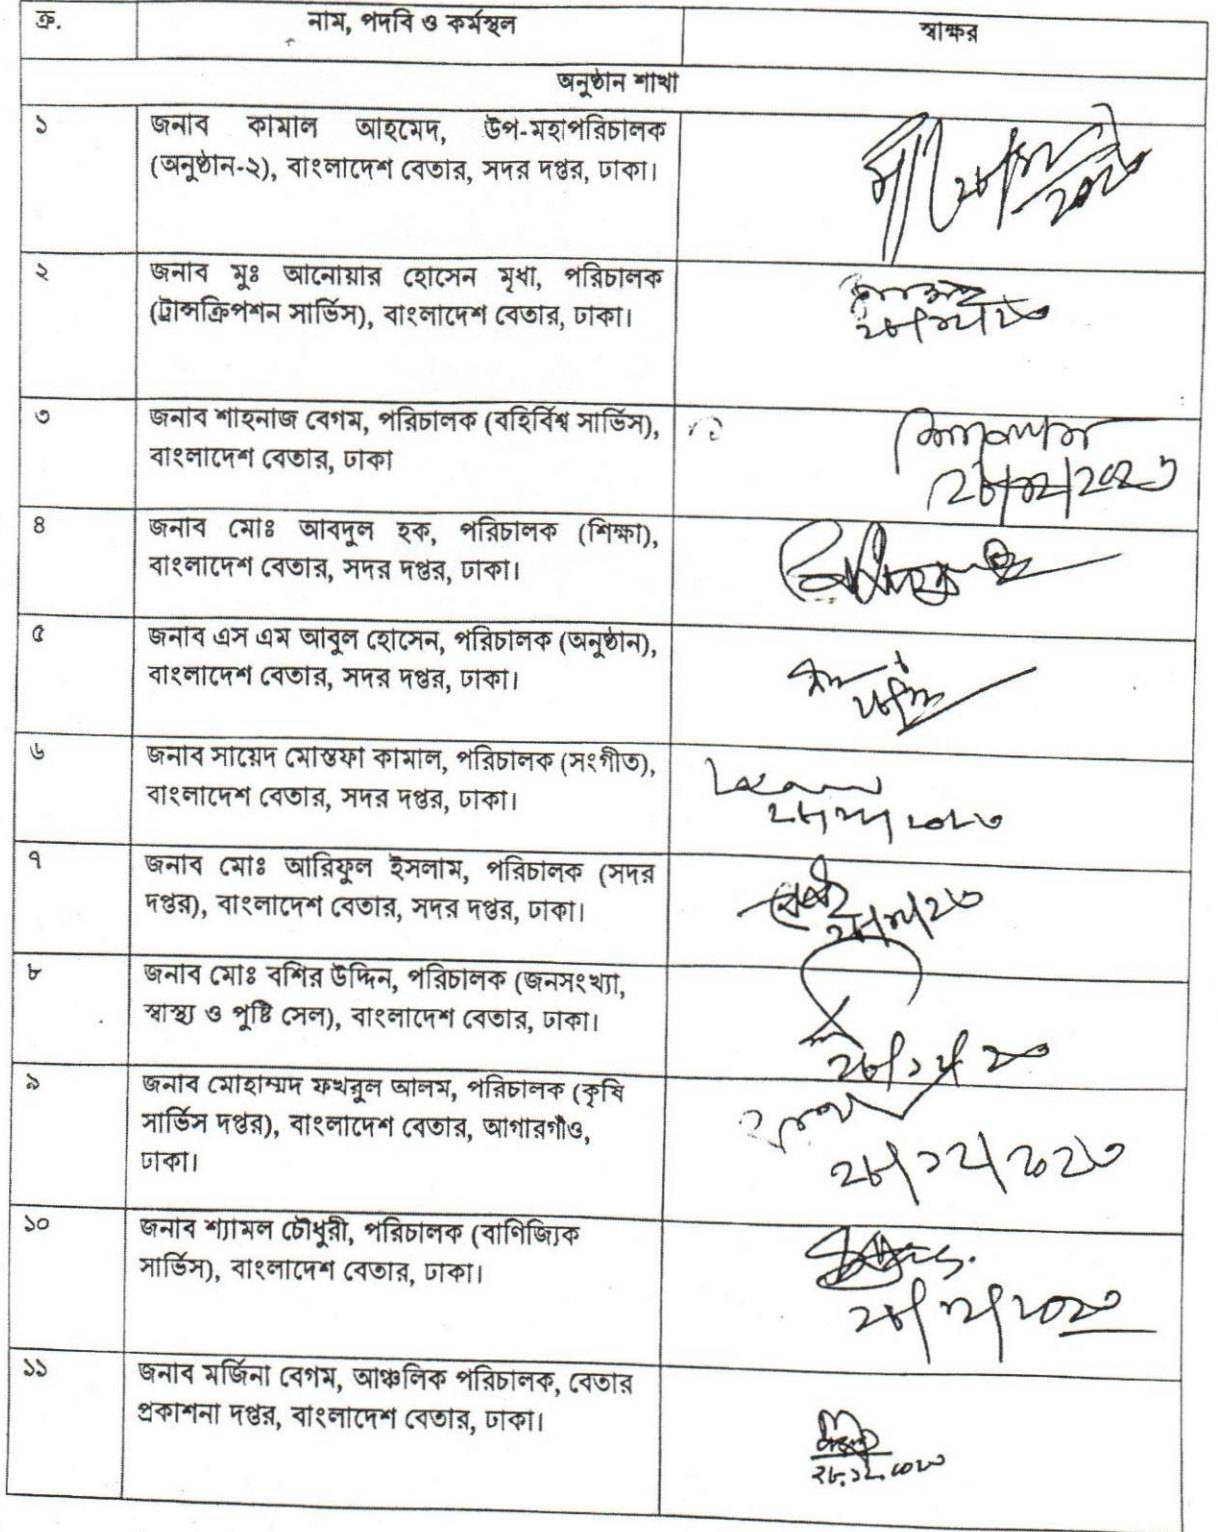 ক্র. নাম, পদবি ও কর্মস্থল স্বাক্ষর
অনুষ্ঠান শাখা
১ জনাব কামাল আহমেদ, উপ-মহাপরিচালক
(অনুষ্ঠান-২), বাংলাদেশ বেতার, সদর দপ্তর, ঢাকা।
২ জনাব মুঃ আনোয়ার হোসেন মৃধা, পরিচালক
(ট্রান্সক্রিপশন সার্ভিস), বাংলাদেশ বেতার, ঢাকা।
২৮/১২/২৩
৩ জনাব শাহনাজ বেগম, পরিচালক (বহির্বিশ্ব সার্ভিস),
বাংলাদেশ বেতার, ঢাকা
২৮/১২/২০২৩
৪ জনাব মোঃ আবদুল হক, পরিচালক (শিক্ষা),
বাংলাদেশ বেতার, সদর দপ্তর, ঢাকা।
৫ জনাব এস এম আবুল হোসেন, পরিচালক (অনুষ্ঠান),
বাংলাদেশ বেতার, সদর দপ্তর, ঢাকা।
৬ জনাব সায়েদ মোস্তফা কামাল, পরিচালক (সংগীত),
বাংলাদেশ বেতার, সদর দপ্তর, ঢাকা।
২৮/১২/২০২৩
৭ জনাব মোঃ আরিফুল ইসলাম, পরিচালক (সদর
দপ্তর), বাংলাদেশ বেতার, সদর দপ্তর, ঢাকা।
২৮/১২/২৩
৮ জনাব মোঃ বশির উদ্দিন, পরিচালক (জনসংখ্যা,
স্বাস্থ্য ও পুষ্টি সেল), বাংলাদেশ বেতার, ঢাকা।
২৮/১২/২৩
৯ জনাব মোহাম্মদ ফখরুল আলম, পরিচালক (কৃষি
সার্ভিস দপ্তর), বাংলাদেশ বেতার, আগারগাঁও,
ঢাকা।
২৮/১২/২০২৩
১০ জনাব শ্যামল চৌধুরী, পরিচালক (বাণিজ্যিক
সার্ভিস), বাংলাদেশ বেতার, ঢাকা।
২৮/১২/২০২৩
১১ জনাব মর্জিনা বেগম, আঞ্চলিক পরিচালক, বেতার
প্রকাশনা দপ্তর, বাংলাদেশ বেতার, ঢাকা।
২৮.১২.২০২৩